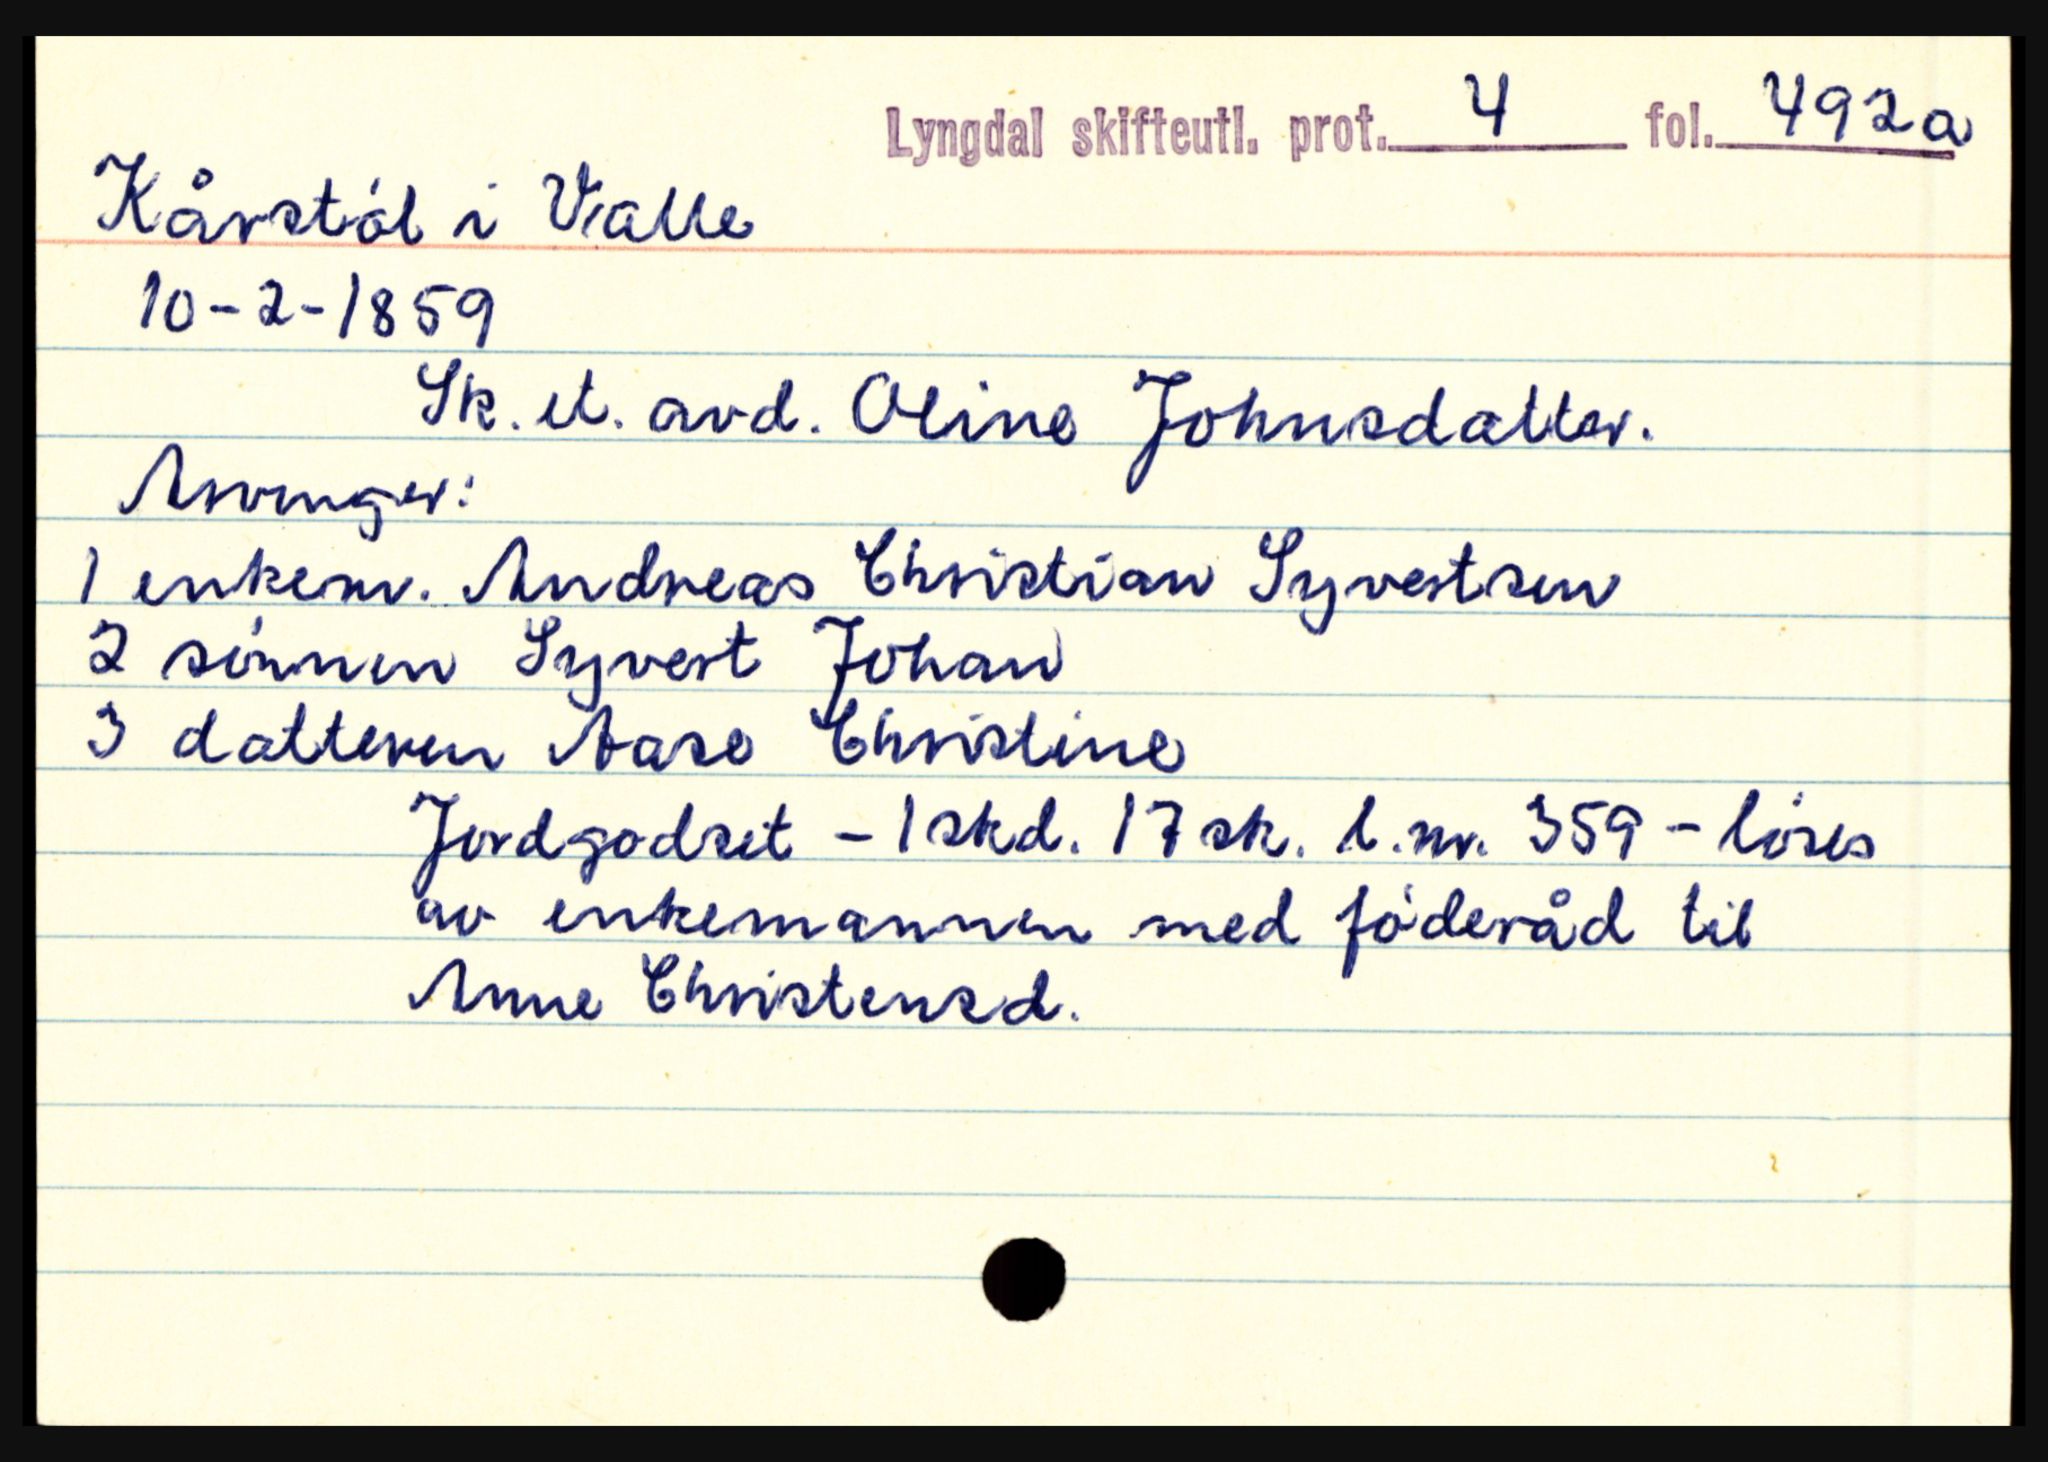 Lyngdal skifteutl. prot. 4 fol. 492a
Kårstøl i Valle
10-2-1859
Sk. et. avd. Oline Johnsdatter.
Arvinger:
1 enkem. Andreas Christian Syvertsen
2 sønnen Syvert Johan
3 datteren Aase Christine
Jordgodset - 1 skd. 17 sk. l.nr. 359 - løses
av enkemannen med føderåd til
Anne Christensd.